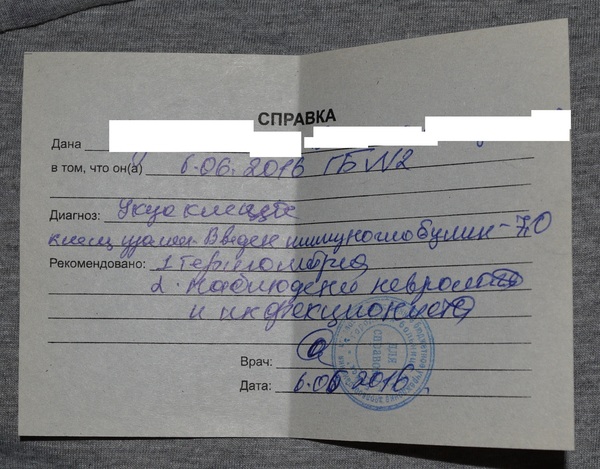 СПРАВКА
Дана
в том, что он(а) 6.06.2016 ГБ N2
Диагноз: Укус клеща
клещ удален Введен иммуноглобулин - 7,0
Рекомендовано: 1 термометрия
2. Наблюдение невролога
и инфекциониста
Врач:
Дата: 6.06 2016
ДЛЯ
СПРАВОК